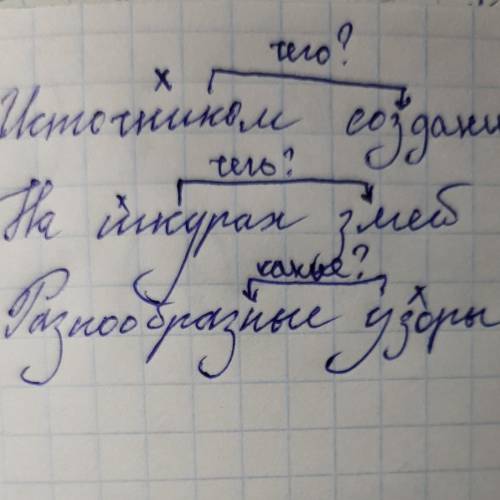 чего?
х
Источником создани
чего?
х
На шкурах змей
какие?
х
Разнообразные узоры